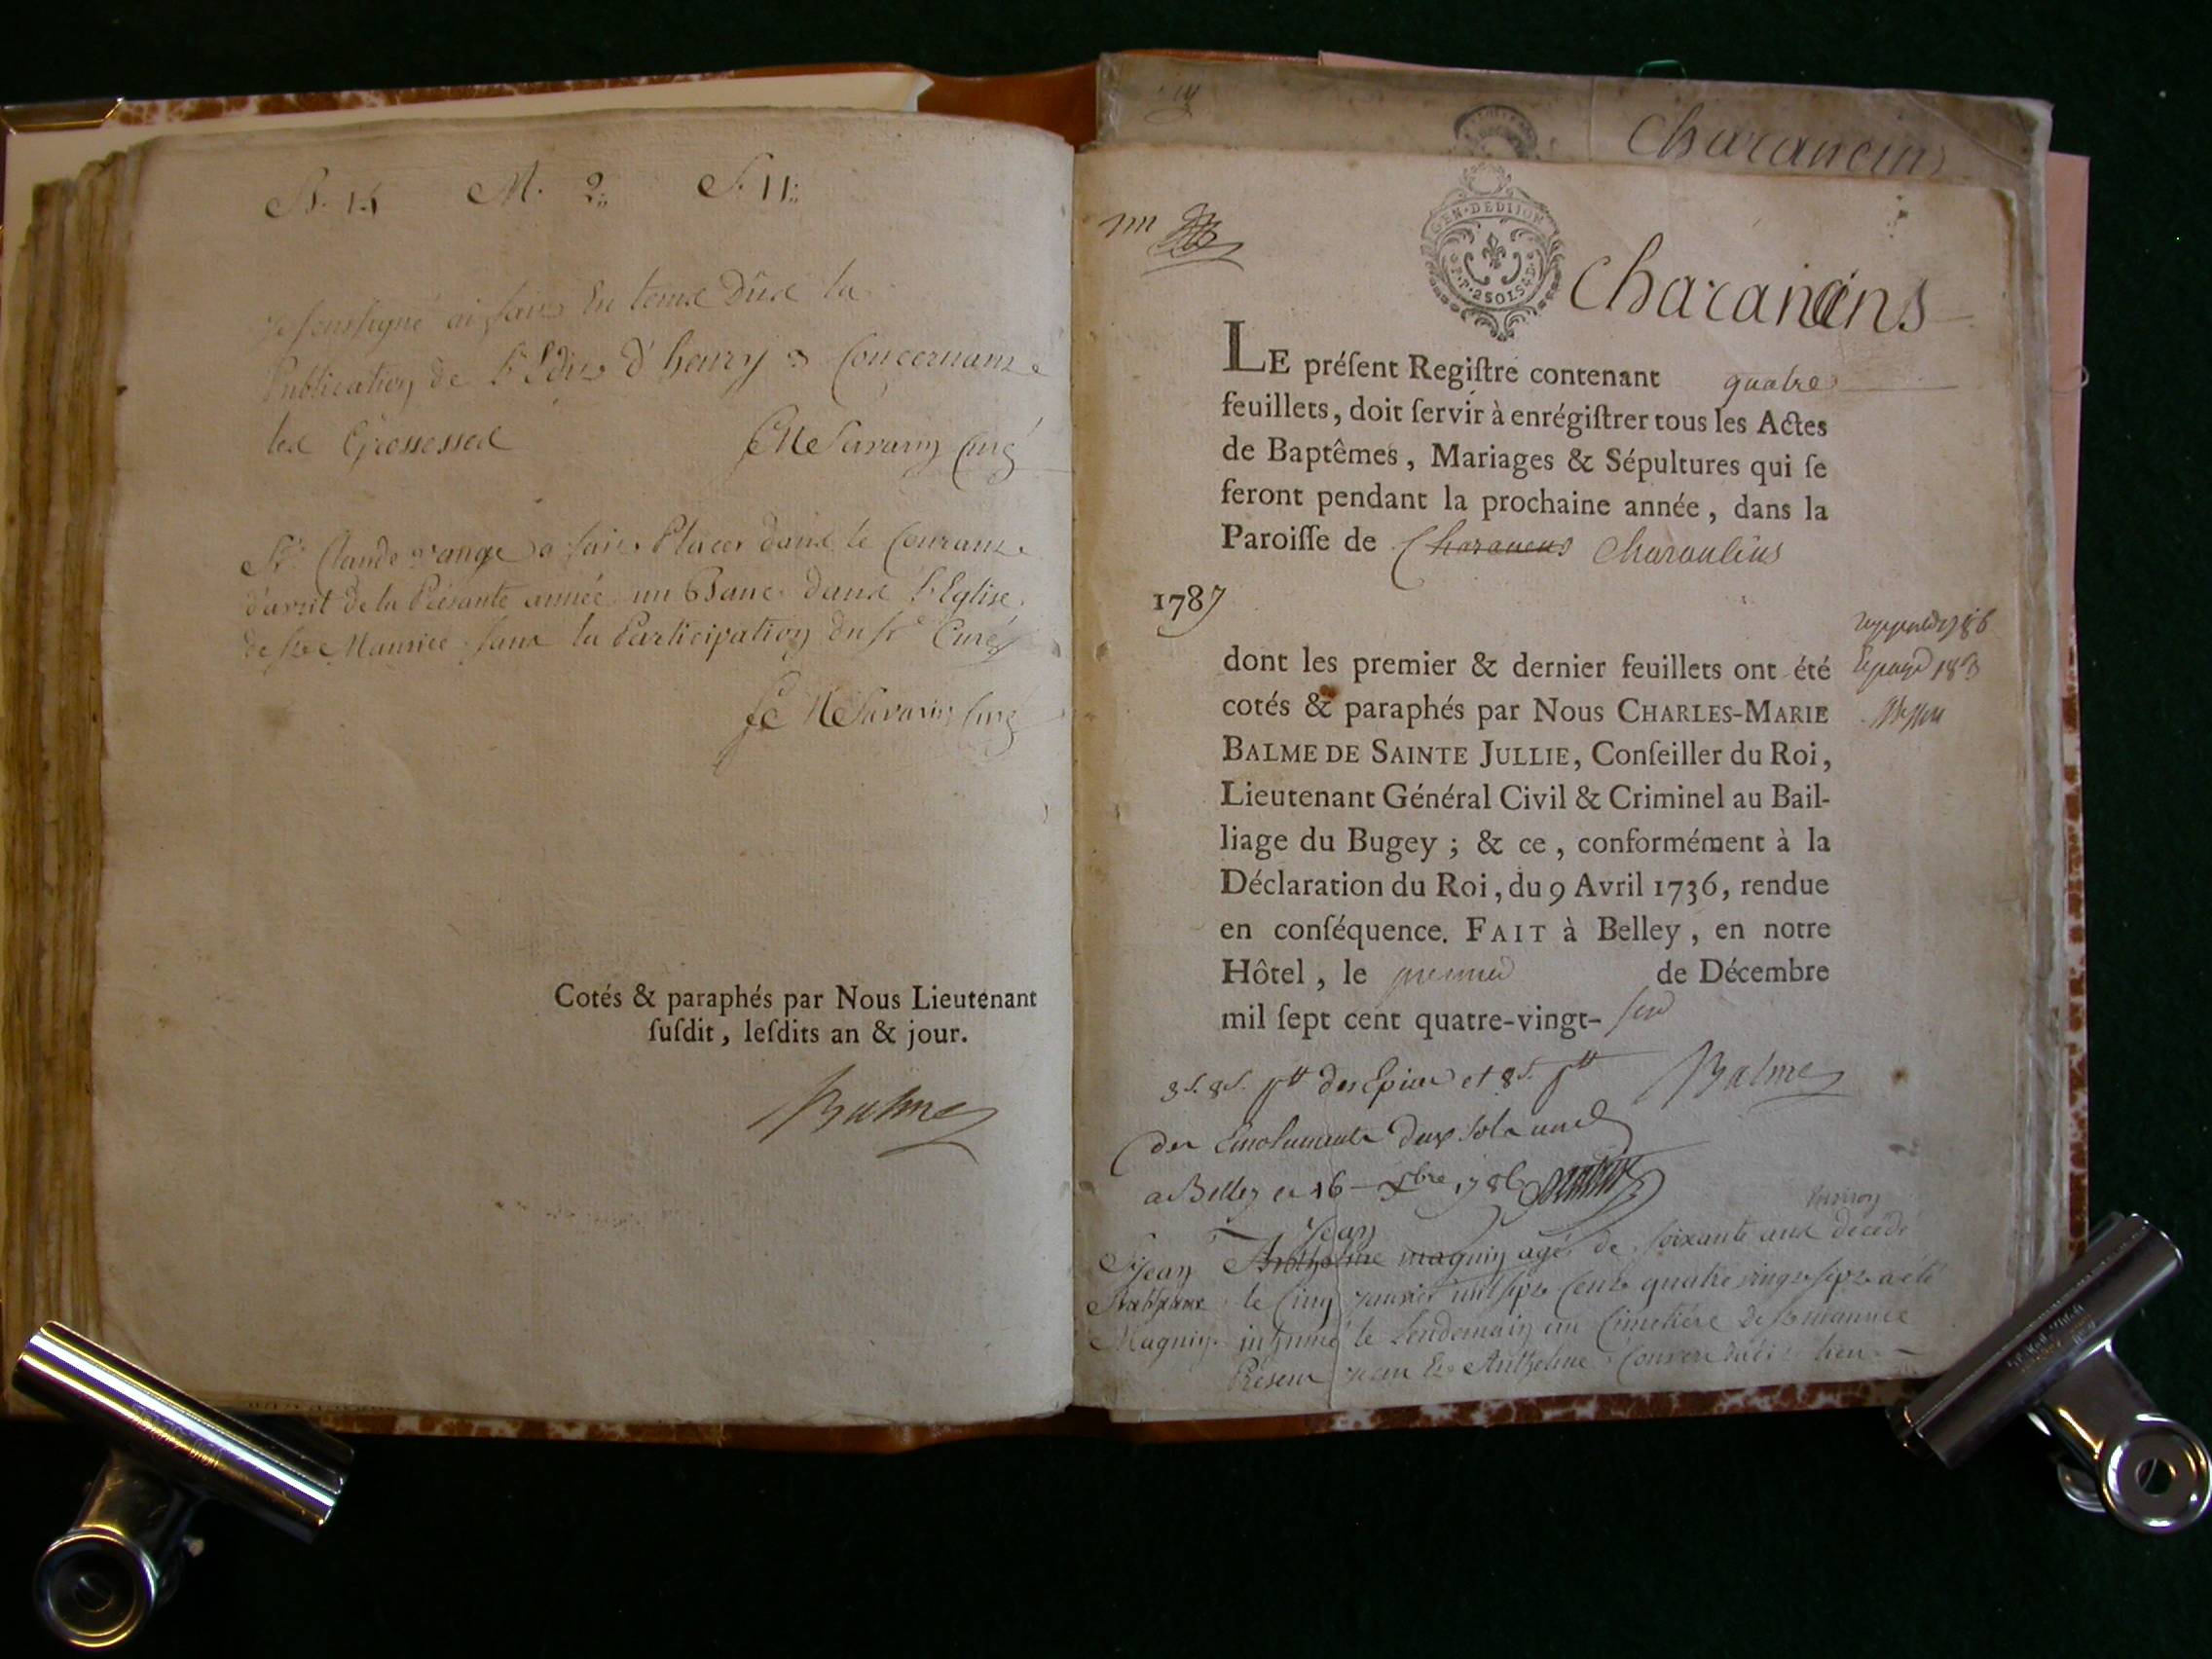 B. 15 M. 2. S. 11.
Je soussigné ai fait en tems Düe la
Publication de l'Edit d'henry 2 Concernant
les Grossesses Savarin Curé
Sr. Claude range a fait Placer dans le Courant
d'avril de la Présante année un Banc dans l'Eglise
de St. Maurice sans la Participation du sr. Curé
Savarin Curé
Cotés & paraphés par Nous Lieutenant
ſuſdit, leſdits an & jour.
Balme
Charancin
GEN·DEDIJON
P·P·2SOLS
Charancins
LE préſent Regiſtre contenant quatre
feuillets, doit ſervir à enrégiſtrer tous les Actes
de Baptêmes, Mariages & Sépultures qui ſe
feront pendant la prochaine année, dans la
Paroiſſe de
1787
dont les premier & dernier feuillets ont été
cotés & paraphés par Nous CHARLES-MARIE
BALME DE SAINTE JULLIE, Conſeiller du Roi,
Lieutenant Général Civil & Criminel au Bail-
liage du Bugey ; & ce, conformément à la
Déclaration du Roi, du 9 Avril 1736, rendue
en conſéquence. FAIT à Belley, en notre
Hôtel, le premier de Décembre
mil ſept cent quatre-vingt-
des Epices et 8 s. Balme
des Emoluments deux sols
a Belley ce 16 xbre 1786
Jean
Jean Antholme magnin agé de soixante ans décédé
le Cinq janvier mil sept cent quatre vingt sept a été
Magnin. inhumé le Lendemain au Cimetière de St maurice
Présent jean Et Anthelme Couvert dudit lieu